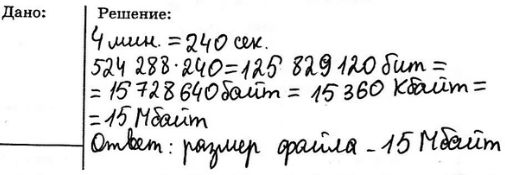 Дано:
Решение:
4 мин. = 240 сек.
524 288·240=125 829 120 бит =
= 15 728 640 байт = 15 360 Кбайт =
= 15 Мбайт
Ответ: размер файла - 15 Мбайт